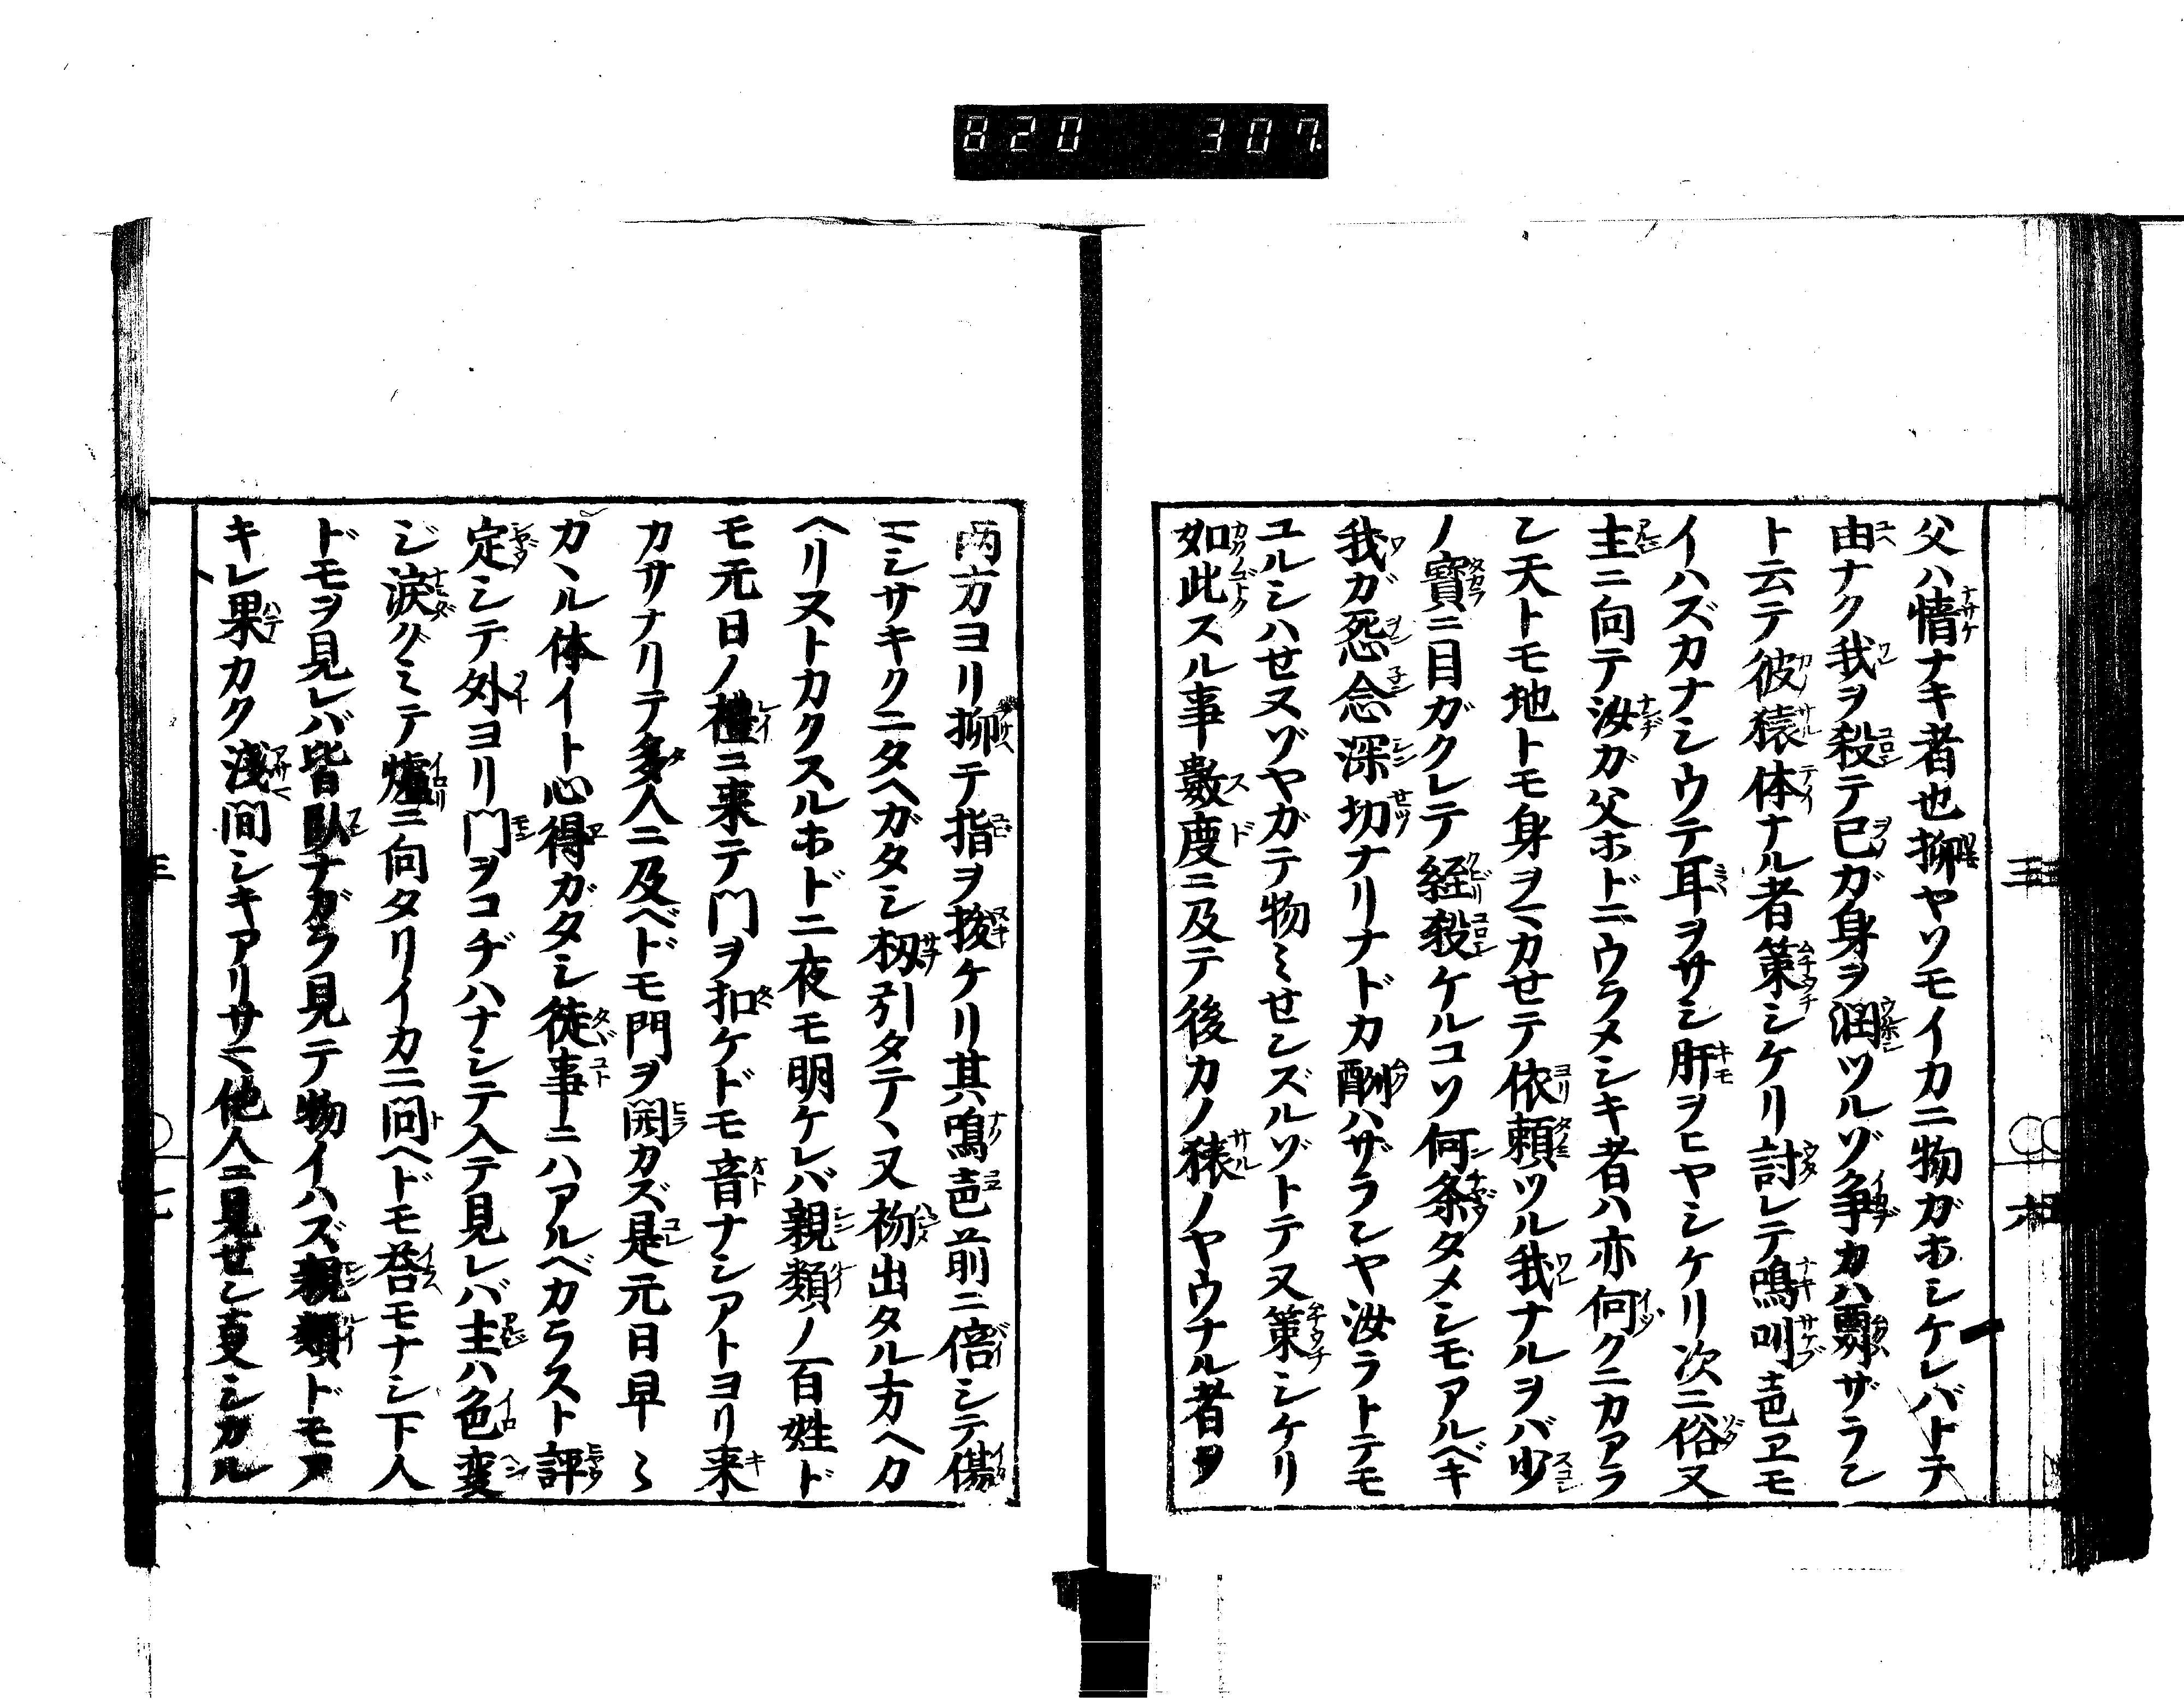 820 307
父ハ情ナキ者也抑ヤソモイカニ物ガホシケレバトテ
由ナク我ヲ殺テ己ガ身ヲ潤ツルゾ争カハ酬ザラン
ト云テ彼猿体ナル者策シケリ討レテ鳴叫声ヱモ
イハズカナシウテ耳ヲサシ肝ヲヒヤシケリ次ニ俗又
主ニ向テ汝ガ父ホドニウラメシキ者ハ亦何クニカアラ
ン天トモ地トモ身ヲマカセテ依頼ツル我ナルヲバ少
ノ寳ニ目ガクレテ経殺ケルコソ何条タメシモアルベキ
我ガ怨念深切ナリナドカ酬ハザランヤ汝ラトテモ
ユルシハセヌゾヤガテ物ミセンズルゾトテ又策シケリ
如此スル事數度ニ及テ後カノ猿ノヤウナル者ヲ
両方ヨリ抑テ指ヲ拔ケリ其鳴声前ニ倍シテ傷
マシサキクニタヘガタシ扨引タテヽ又初出タル方ヘカ
ヘリヌトカクスルホドニ夜モ明ケレバ親類ノ百姓ド
モ元日ノ禮ニ来テ門ヲ扣ケドモ音ナシアトヨリ来
カサナリテ多人ニ及ベドモ門ヲ開カズ是元日早〻
カヽル体イト心得ガタシ徒事ニハアルベカラスト評
定シテ外ヨリ門ヲコヂハナシテ入テ見レバ主ハ色変
ジ涙グミテ爐ニ向タリイカニ問ヘドモ答モナシ下人
ドモヲ見レバ皆臥ナガラ見テ物イハズ親類ドモア
キレ果カク淺間シキアリサマ他人ニ見セン夏シカル